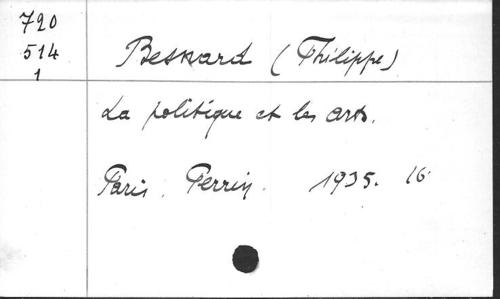 720
514
1
Besnard (Philippe)
La politique et les arts.
Paris. Perrin. 1935. 16